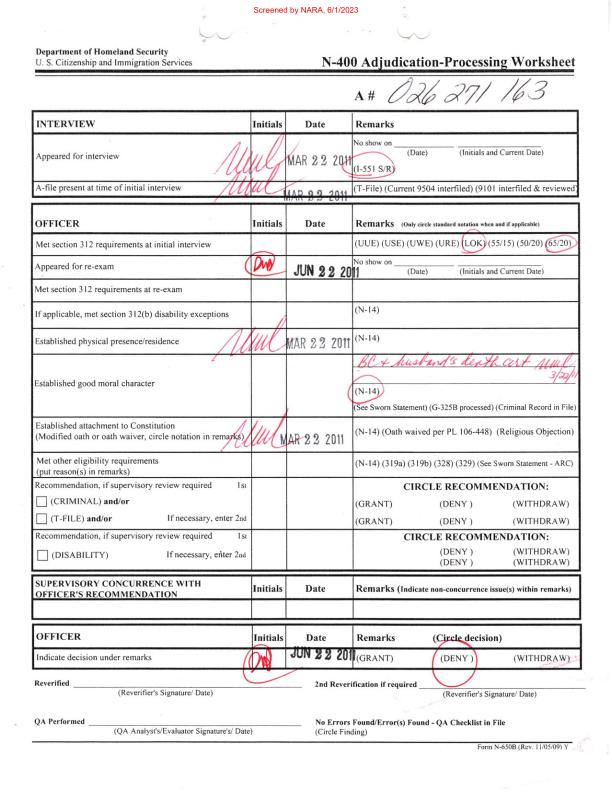 Screened by NARA, 6/1/2023
Department of Homeland Security
U. S. Citizenship and Immigration Services
N-400 Adjudication-Processing Worksheet
A # 026 271 163
INTERVIEW Initials Date Remarks
Appeared for interview MAR 22 2011 No show on
(Date) (Initials and Current Date)
(I-551 S/R)
A-file present at time of initial interview MAR 22 2011 (T-File) (Current 9504 interfiled) (9101 interfiled & reviewed)
OFFICER Initials Date Remarks (Only circle standard notation when and if applicable)
Met section 312 requirements at initial interview (UUE) (USE) (UWE) (URE) (LOK) (55/15) (50/20) (65/20)
Appeared for re-exam JUN 22 2011 No show on
(Date) (Initials and Current Date)
Met section 312 requirements at re-exam
If applicable, met section 312(b) disability exceptions (N-14)
Established physical presence/residence MAR 22 2011 (N-14)
BC + husband's death cert
3/22/11
Established good moral character (N-14)
(See Sworn Statement) (G-325B processed) (Criminal Record in File)
Established attachment to Constitution
(Modified oath or oath waiver, circle notation in remarks) MAR 22 2011 (N-14) (Oath waived per PL 106-448) (Religious Objection)
Met other eligibility requirements
(put reason(s) in remarks) (N-14) (319a) (319b) (328) (329) (See Sworn Statement - ARC)
Recommendation, if supervisory review required 1st CIRCLE RECOMMENDATION:
(CRIMINAL) and/or (GRANT) (DENY ) (WITHDRAW)
(T-FILE) and/or If necessary, enter 2nd (GRANT) (DENY ) (WITHDRAW)
Recommendation, if supervisory review required 1st CIRCLE RECOMMENDATION:
(DENY ) (WITHDRAW)
(DISABILITY) If necessary, enter 2nd (DENY ) (WITHDRAW)
SUPERVISORY CONCURRENCE WITH
OFFICER'S RECOMMENDATION Initials Date Remarks (Indicate non-concurrence issue(s) within remarks)
OFFICER Initials Date Remarks (Circle decision)
Indicate decision under remarks JUN 22 2011 (GRANT) (DENY ) (WITHDRAW)
Reverified 2nd Reverification if required
(Reverifier's Signature/ Date) (Reverifier's Signature/ Date)
QA Performed No Errors Found/Error(s) Found - QA Checklist in File
(QA Analyst's/Evaluator Signature's/ Date) (Circle Finding)
Form N-650B (Rev. 11/05/09) Y